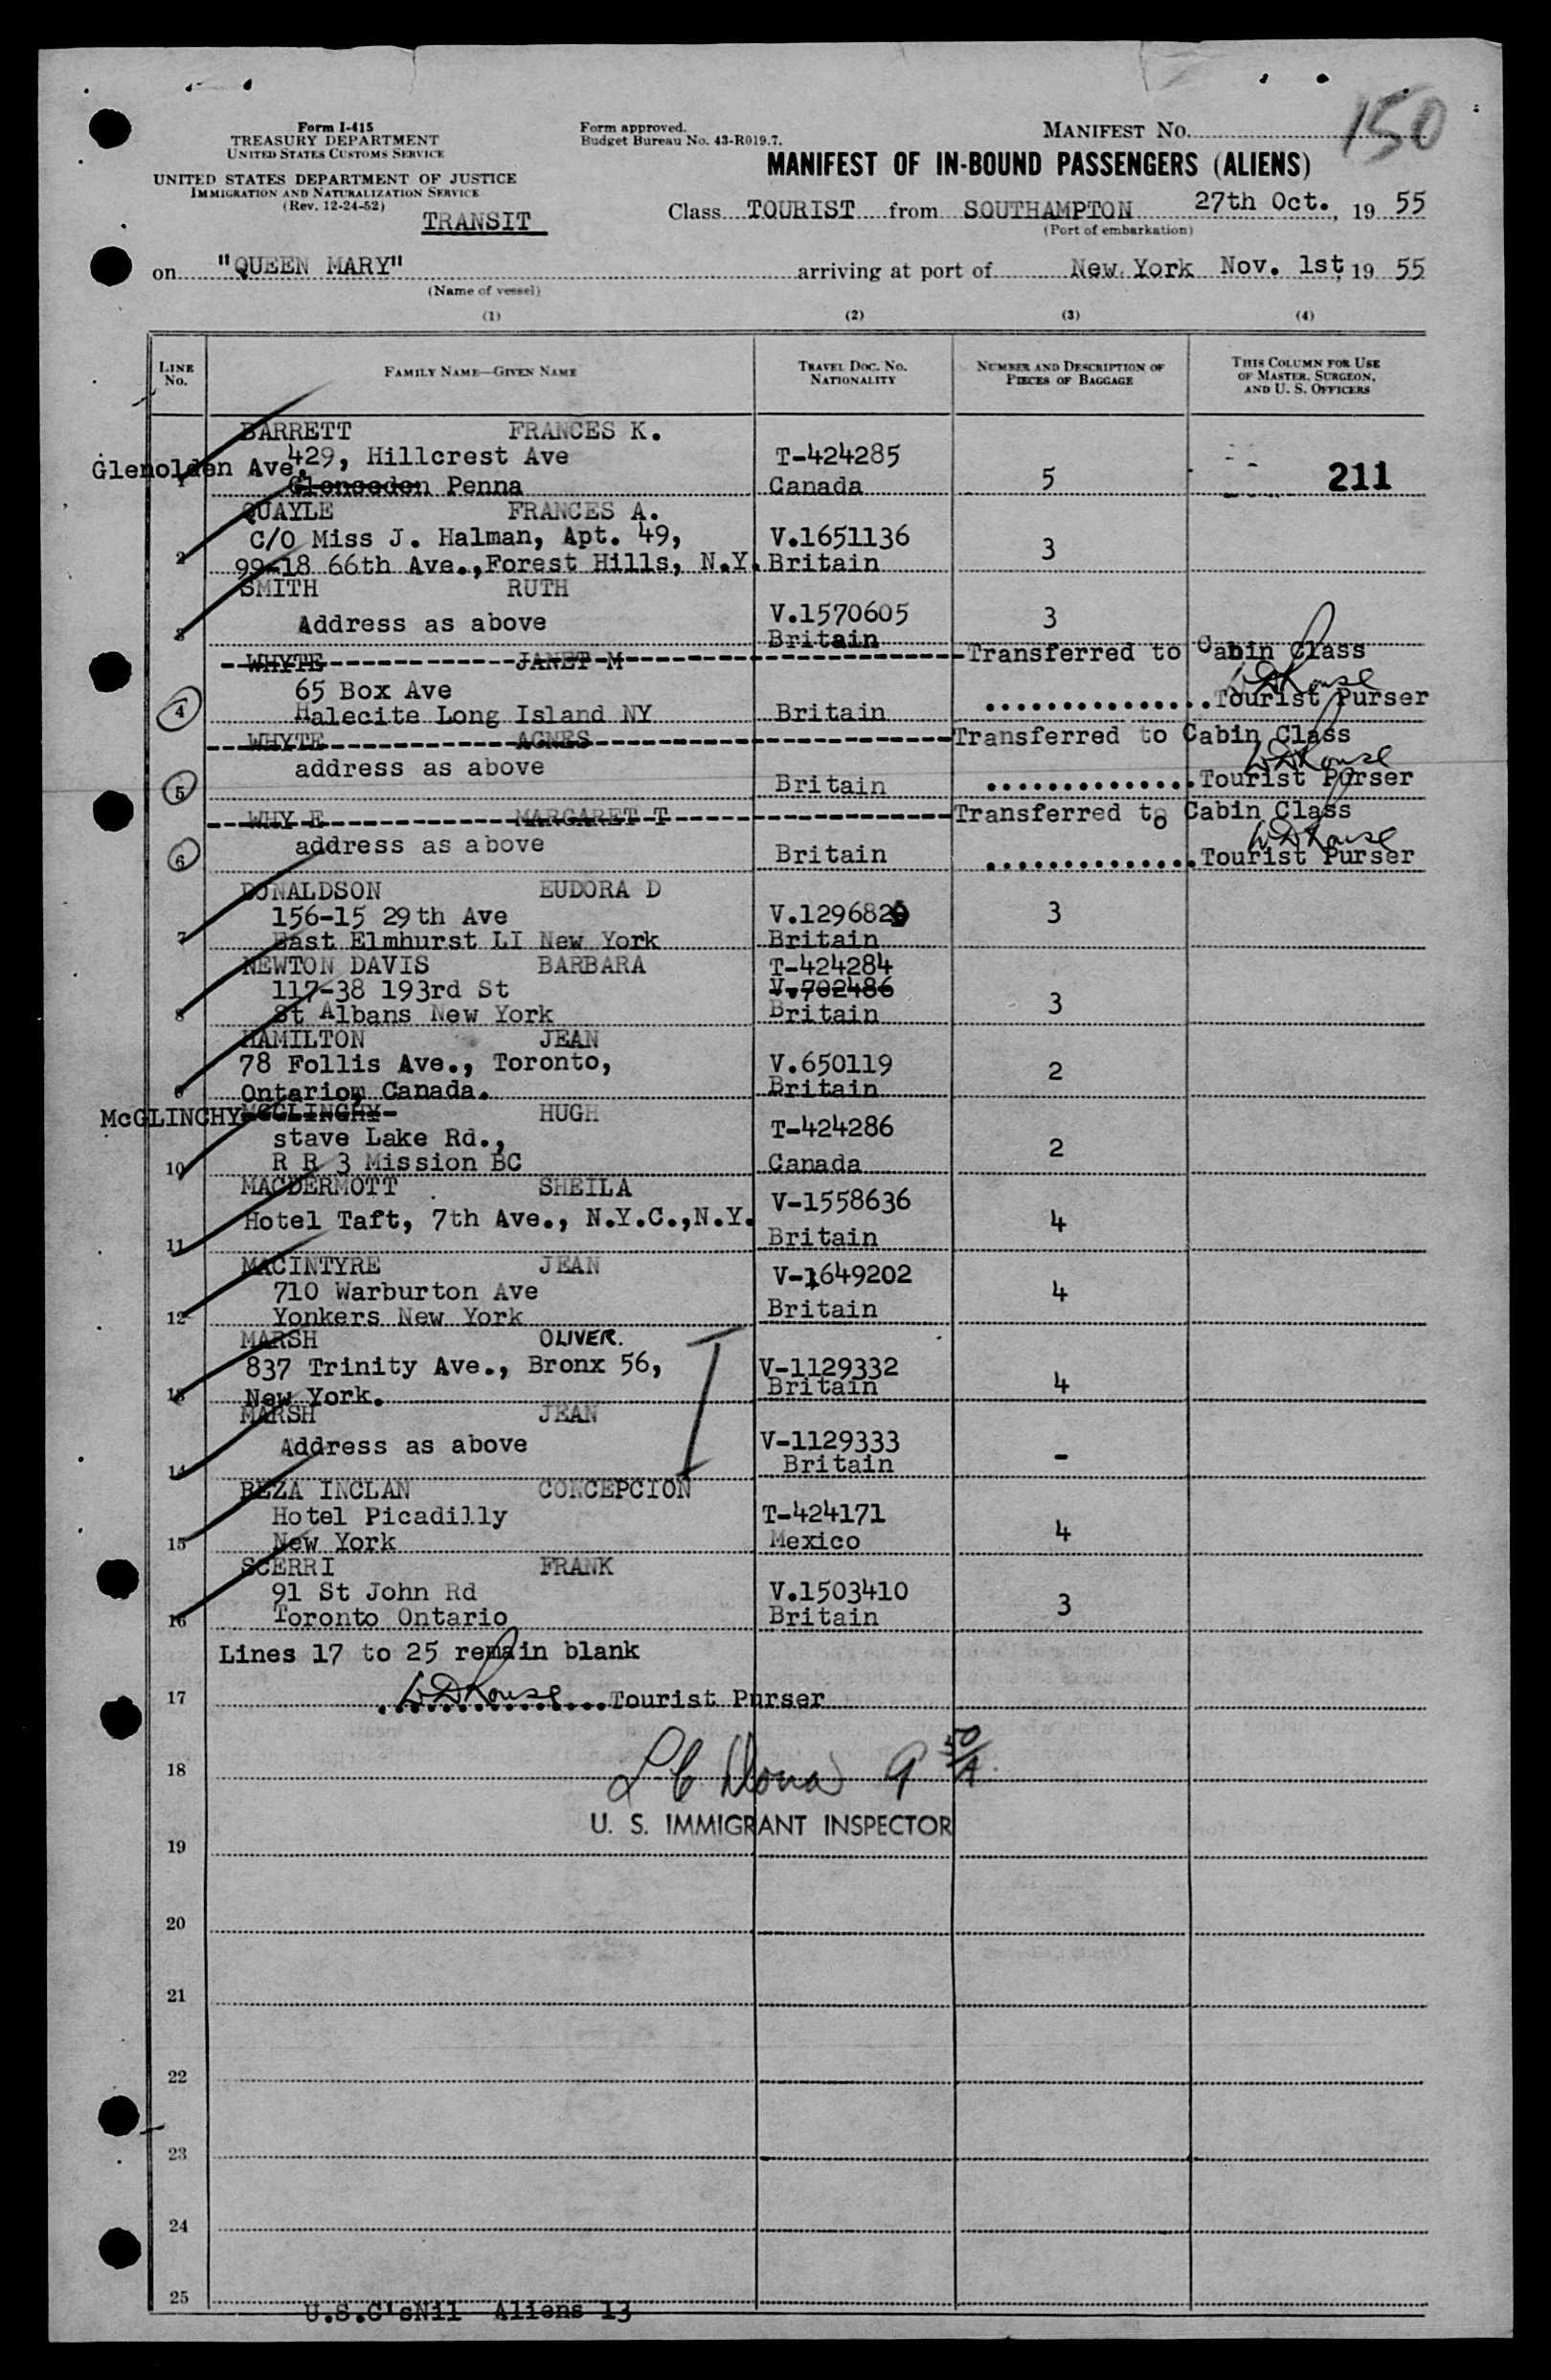 150
Form I-415
TREASURY DEPARTMENT
UNITED STATES CUSTOMS SERVICE
UNITED STATES DEPARTMENT OF JUSTICE
IMMIGRATION AND NATURALIZATION SERVICE
(Rev. 12-24-52)
TRANSIT
Form approved.
Budget Bureau No. 43-R019.7.
MANIFEST NO.
MANIFEST OF IN-BOUND PASSENGERS (ALIENS)
Class TOURIST from SOUTHAMPTON 27th Oct., 19 55
(Port of embarkation)
on "QUEEN MARY" arriving at port of New York Nov. 1st, 19 55
(Name of vessel)
(1) (2) (3) (4)
LINE NO. FAMILY NAME—GIVEN NAME TRAVEL DOC. NO. NATIONALITY NUMBER AND DESCRIPTION OF PIECES OF BAGGAGE THIS COLUMN FOR USE OF MASTER, SURGEON, AND U. S. OFFICERS
BARRETT FRANCES K.
429, Hillcrest Ave T-424285
Glenolden Ave,
1 Penna Canada 5 211
QUAYLE FRANCES A.
C/O Miss J. Halman, Apt. 49, V.1651136
2 99-18 66th Ave.,Forest Hills, N.Y. Britain 3
SMITH RUTH
Address as above V.1570605 3
3 Britain
WHYTE JANET M Transferred to Cabin Class
65 Box Ave
4 Halecite Long Island NY Britain Tourist Purser
WHYTE AGNES Transferred to Cabin Class
address as above
5 Britain Tourist Purser
WHY E MARGARET T Transferred to Cabin Class
address as above
6 Britain Tourist Purser
DONALDSON EUDORA D
156-15 29th Ave V.129682 3
7 East Elmhurst LI New York Britain
NEWTON DAVIS BARBARA T-424284
117-38 193rd St V.702486
8 St Albans New York Britain 3
HAMILTON JEAN
78 Follis Ave., Toronto, V.650119 2
9 Ontario, Canada. Britain
McGLINCHY MCGLINCHY HUGH
stave Lake Rd., T-424286
10 R R 3 Mission BC Canada 2
MACDERMOTT SHEILA V-1558636
Hotel Taft, 7th Ave., N.Y.C.,N.Y. 4
11 Britain
MACINTYRE JEAN
710 Warburton Ave V-1649202 4
12 Yonkers New York Britain
MARSH OLIVER.
837 Trinity Ave., Bronx 56, V-1129332
13 New York. Britain 4
MARSH JEAN
Address as above V-1129333
14 Britain -
REZA INCLAN CONCEPCION
Hotel Picadilly T-424171
15 New York Mexico 4
SCERRI FRANK
91 St John Rd V.1503410
16 Toronto Ontario Britain 3
Lines 17 to 25 remain blank
17 Tourist Purser
18
U. S. IMMIGRANT INSPECTOR
19
20
21
22
23
24
25
U.S.C'sNil Aliens 13